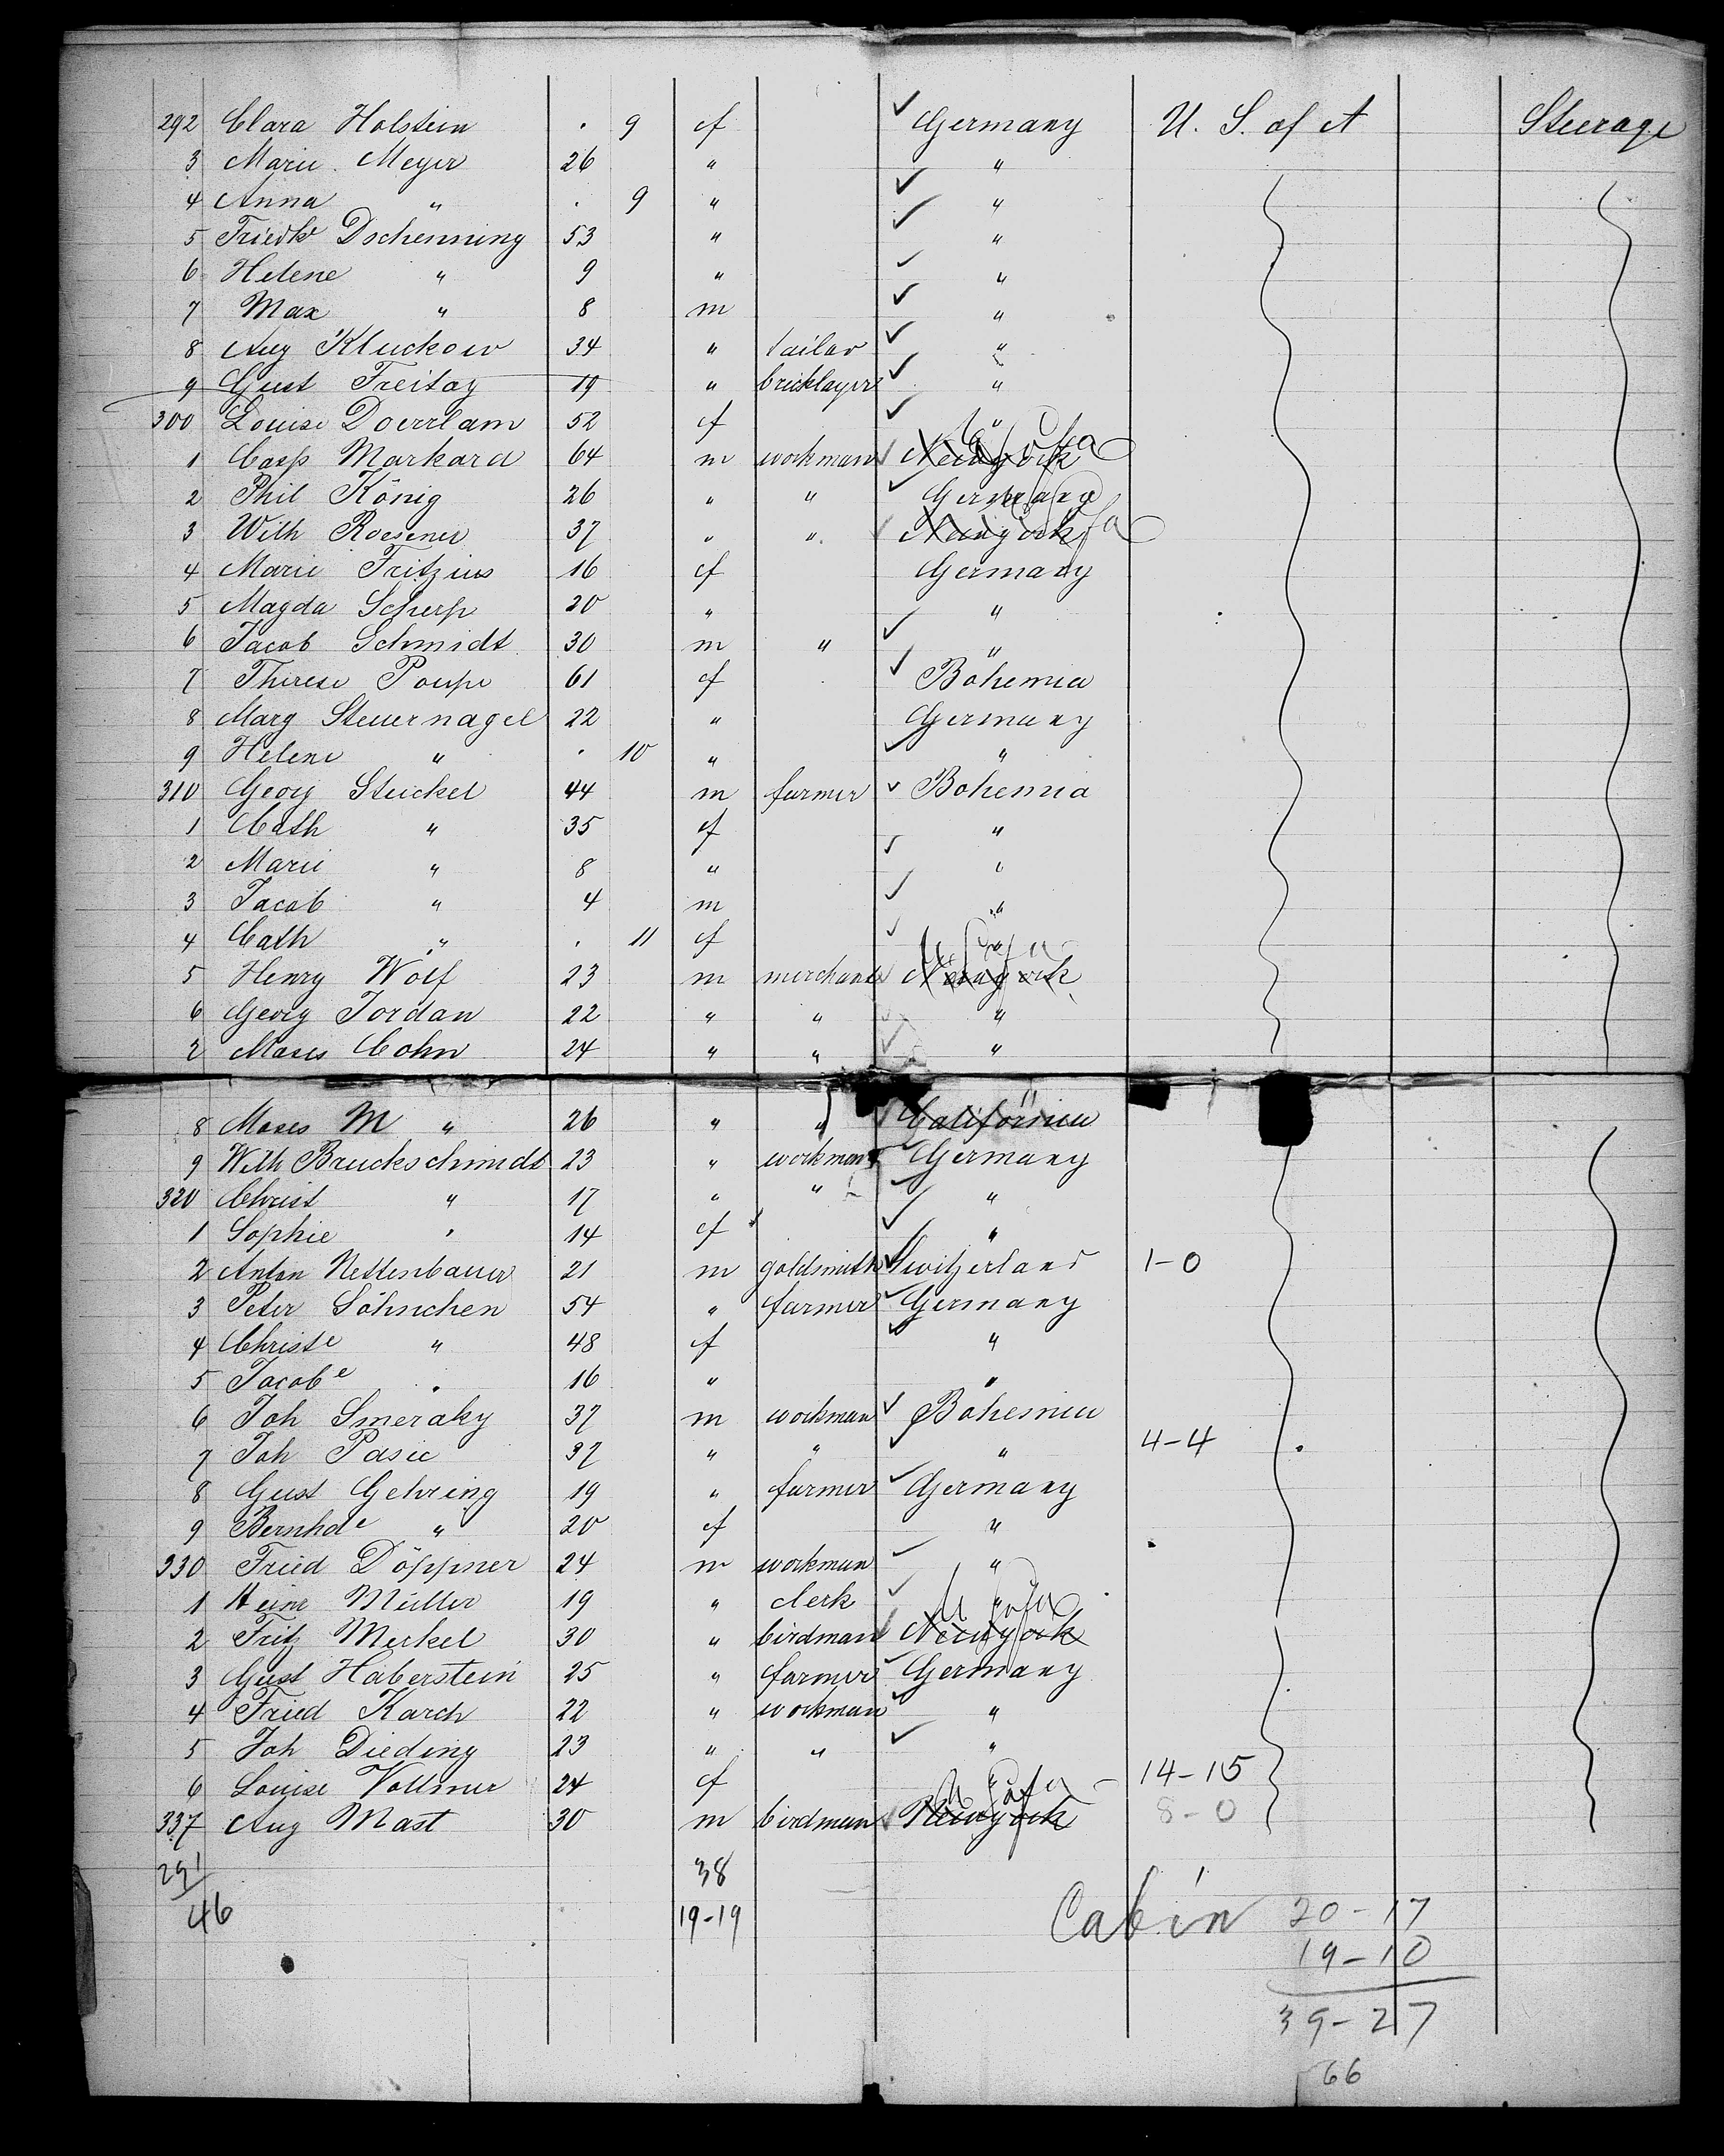 292 Clara Holstein . 9 f Germany U. S. of A Steerage
3 Marie Meyer 26 " "
4 Anna " . 9 " "
5 Friedke Dschenning 53 " "
6 Helene " 9 " "
7 Max " 8 m "
8 Aug Kluckow 34 " tailor "
9 Gust Freitag 19 " bricklayer "
300 Louise Doerrlam 52 f "
1 Casp Markard 64 m workman Newyork U S of a
2 Phil König 26 " " Germany
3 Wilh Roesener 37 " " Newyork U S of a
4 Marie Fritzius 16 f Germany
5 Magda Scherp 20 " "
6 Jacob Schmidt 30 m " "
7 Therese Poupe 61 f Bohemia
8 Marg Steuernagel 22 " Germany
9 Helene " . 10 " "
310 Georg Steickel 44 m farmer Bohemia
1 Cath " 35 f "
2 Marie " 8 " "
3 Jacob " 4 m "
4 Cath " . 11 f "
5 Henry Wolf 23 m merchant Newyork U S of a
6 Georg Jordan 22 " " "
7 Moses Cohn 24 " " "
8 Moses M " 26 " " California
9 Wilh Bruckschmidt 23 " workman Germany
320 Christ " 17 " " "
1 Sophie " 14 f "
2 Anton Nettenbauer 21 m goldsmith Switzerland 1-0
3 Peter Söhnchen 54 " farmer Germany
4 Christe " 48 f "
5 Jacobe " 16 " "
6 Joh Smeraky 37 m workman Bohemia
7 Joh Pasic 37 " " " 4-4
8 Gust Gehring 19 " farmer Germany
9 Bernhde " 20 f "
330 Fried Döppner 24 m workman "
1 Heinr Müller 19 " clerk "
2 Fritz Merkel 30 " birdman Newyork U S of a
3 Gust Haberstein 25 " farmer Germany
4 Fried Karch 22 " workman "
5 Joh Dieding 23 " " "
6 Louise Vollmer 24 f " 14-15
337 Aug Mast 30 m birdman Newyork U S of a 8-0
291 38
46 19-19 Cabin 20-17
19-10
39-27
66